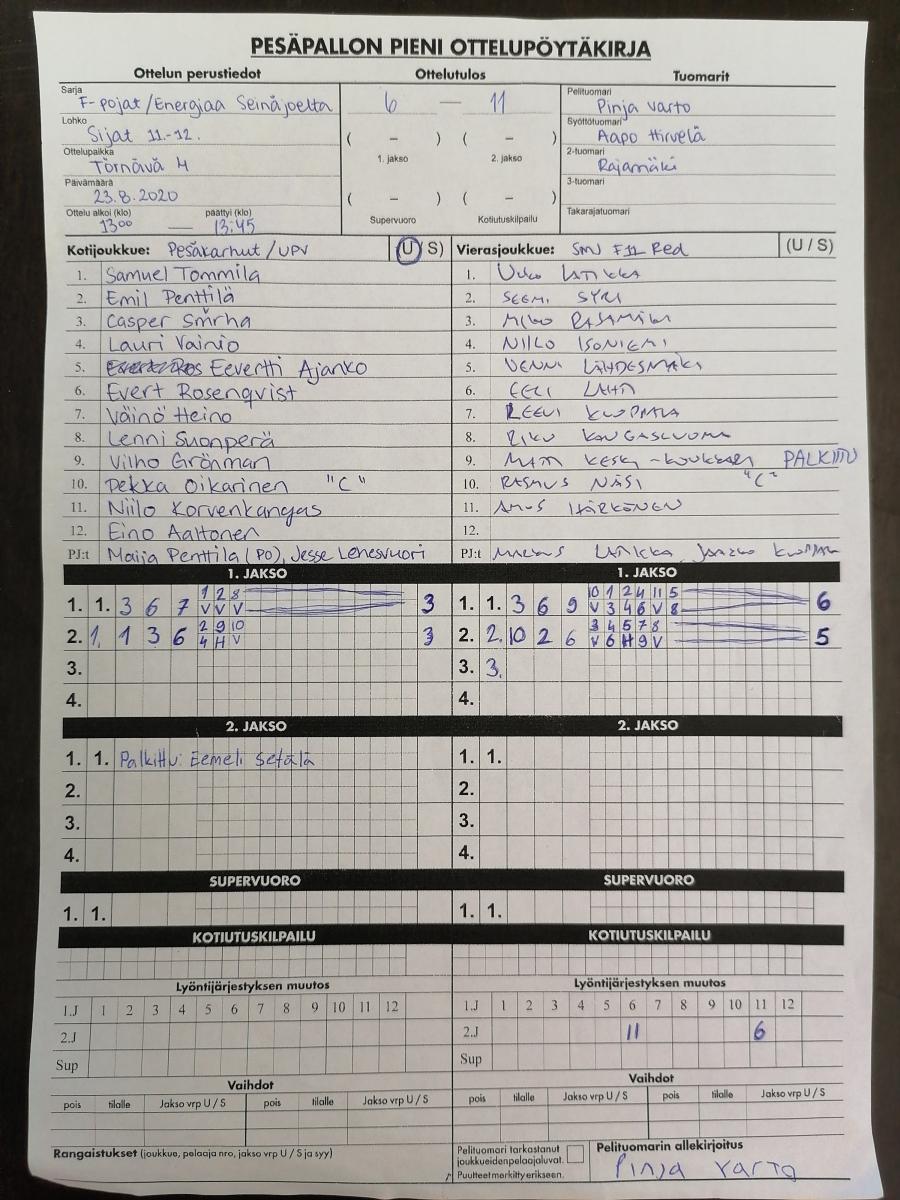 PESÄPALLON PIENI OTTELUPÖYTÄKIRJA
Ottelun perustiedot Ottelutulos Tuomarit
Sarja F-pojat/Energiaa Seinäjoelta
Lohko Sijat 11.-12.
Ottelupaikka Törnävä 4
Päivämäärä 23.8.2020
Ottelu alkoi (klo) päättyi (klo)
13:00 — 13:45
6 — 11
( – ) ( – )
1. jakso 2. jakso
( – ) ( – )
Supervuoro Kotiutuskilpailu
Pelituomari Pinja Varto
Syöttötuomari Aapo Hirvelä
2-tuomari Rajamäki
3-tuomari
Takarajatuomari
Kotijoukkue: Pesäkarhut/UPV (U/S)
1. Samuel Tommila
2. Emil Penttilä
3. Casper
4. Lauri Vainio
5. Eevertti Ajanko
6. Evert Rosenqvist
7. Väinö Heino
8. Lenni Suonperä
9. Vilho Grönman
10. Pekka Oikarinen "C"
11. Niilo Korvenkangas
12. Eino Aaltonen
PJ:t Maija Penttilä (PO), Jesse Lehesvuori
Vierasjoukkue: SMJ F11 Red (U/S)
1. LATIKKA
2. SEEMI SYRI
3.
4. NIILO ISONIEMI
5. VENNI LÄHDESMÄKI
6. EELI LAHTI
7. LEEVI KUOPPALA
8. RIKU KANGASLUOMA
9. MATTI KESKI-KOUKKARI PALKITTU
10. RASMUS NÄSI "C"
11. HÄRKÖNEN
12.
PJ:t LATIKKA
1. JAKSO
1 2 8
1. 1. 3 6 7 V V V 3
2 9 10
2. 1. 1 3 6 4 H V 3
3.
4.
1. JAKSO
10 1 2 4 11 5
1. 1. 3 6 9 V 3 4 6 V 8 6
3 4 5 7 8
2. 2. 10 2 6 V 6 H 9 V 5
3. 3.
4.
2. JAKSO
1. 1. Palkittu: Eemeli Setälä
2.
3.
4.
2. JAKSO
1. 1.
2.
3.
4.
SUPERVUORO SUPERVUORO
1. 1. 1. 1.
KOTIUTUSKILPAILU KOTIUTUSKILPAILU
Lyöntijärjestyksen muutos
1.J 1 2 3 4 5 6 7 8 9 10 11 12
2.J
Sup
Lyöntijärjestyksen muutos
1.J 1 2 3 4 5 6 7 8 9 10 11 12
2.J 11 6
Sup
Vaihdot Vaihdot
pois tilalle Jakso vrp U / S pois tilalle Jakso vrp U / S
pois tilalle Jakso vrp U / S pois tilalle Jakso vrp U / S
Rangaistukset (joukkue, pelaaja nro, jakso vrp U / S ja syy)
Pelituomari tarkastanut
joukkueidenpelaajaluvat.
Puutteet merkitty erikseen.
Pelituomarin allekirjoitus
Pinja Varto